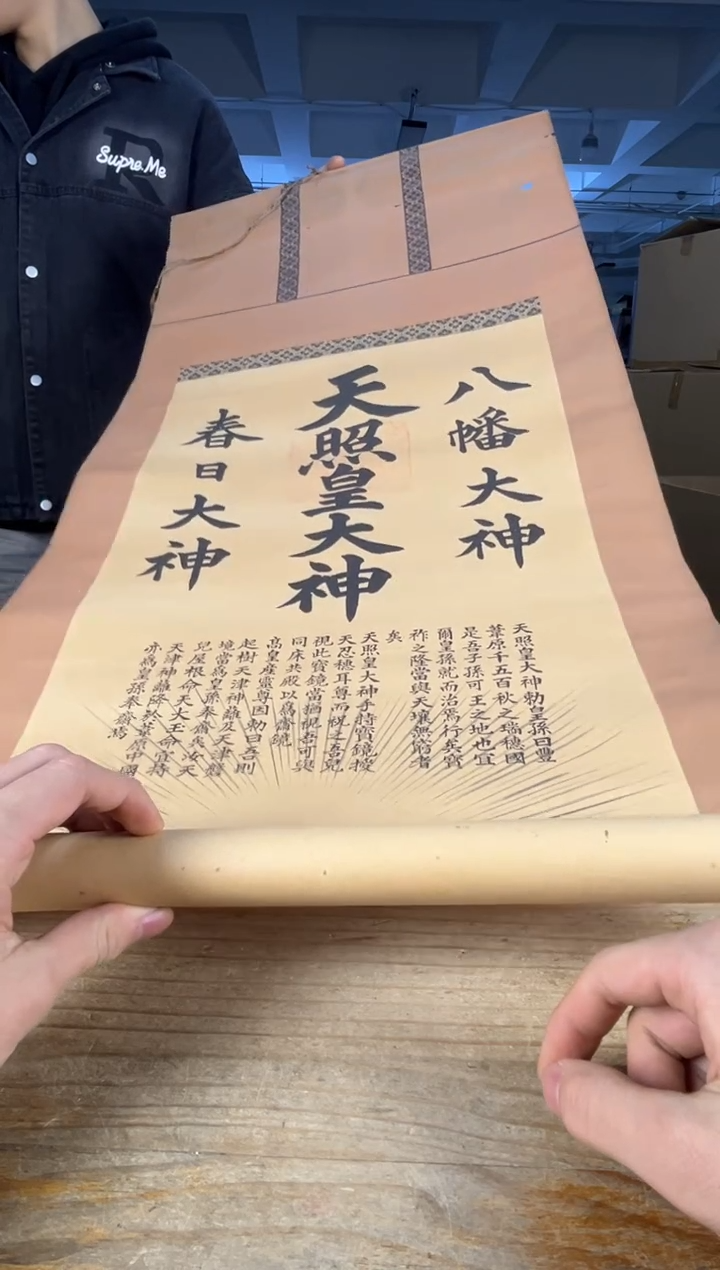 Supre.Me
R
八幡大神
天照皇大神
春日大神
天照皇大神勅皇孫曰豐
葦原千五百秋之瑞穗國
是吾子孫可王之地也宜
爾皇孫就而治焉行矣寶
祚之隆當與天壤無窮者
矣
天照皇大神手持寶鏡授
天忍穗耳尊而祝之吾兒
視此寶鏡當猶視吾可與
同床共殿以爲齋鏡
高皇産靈尊因勅曰吾則
起樹天津神籬及天津磐
境當爲皇孫奉齋矣汝天
兒屋根命天太玉命宜持
天津神籬降於葦原中國
亦爲皇孫奉齋焉